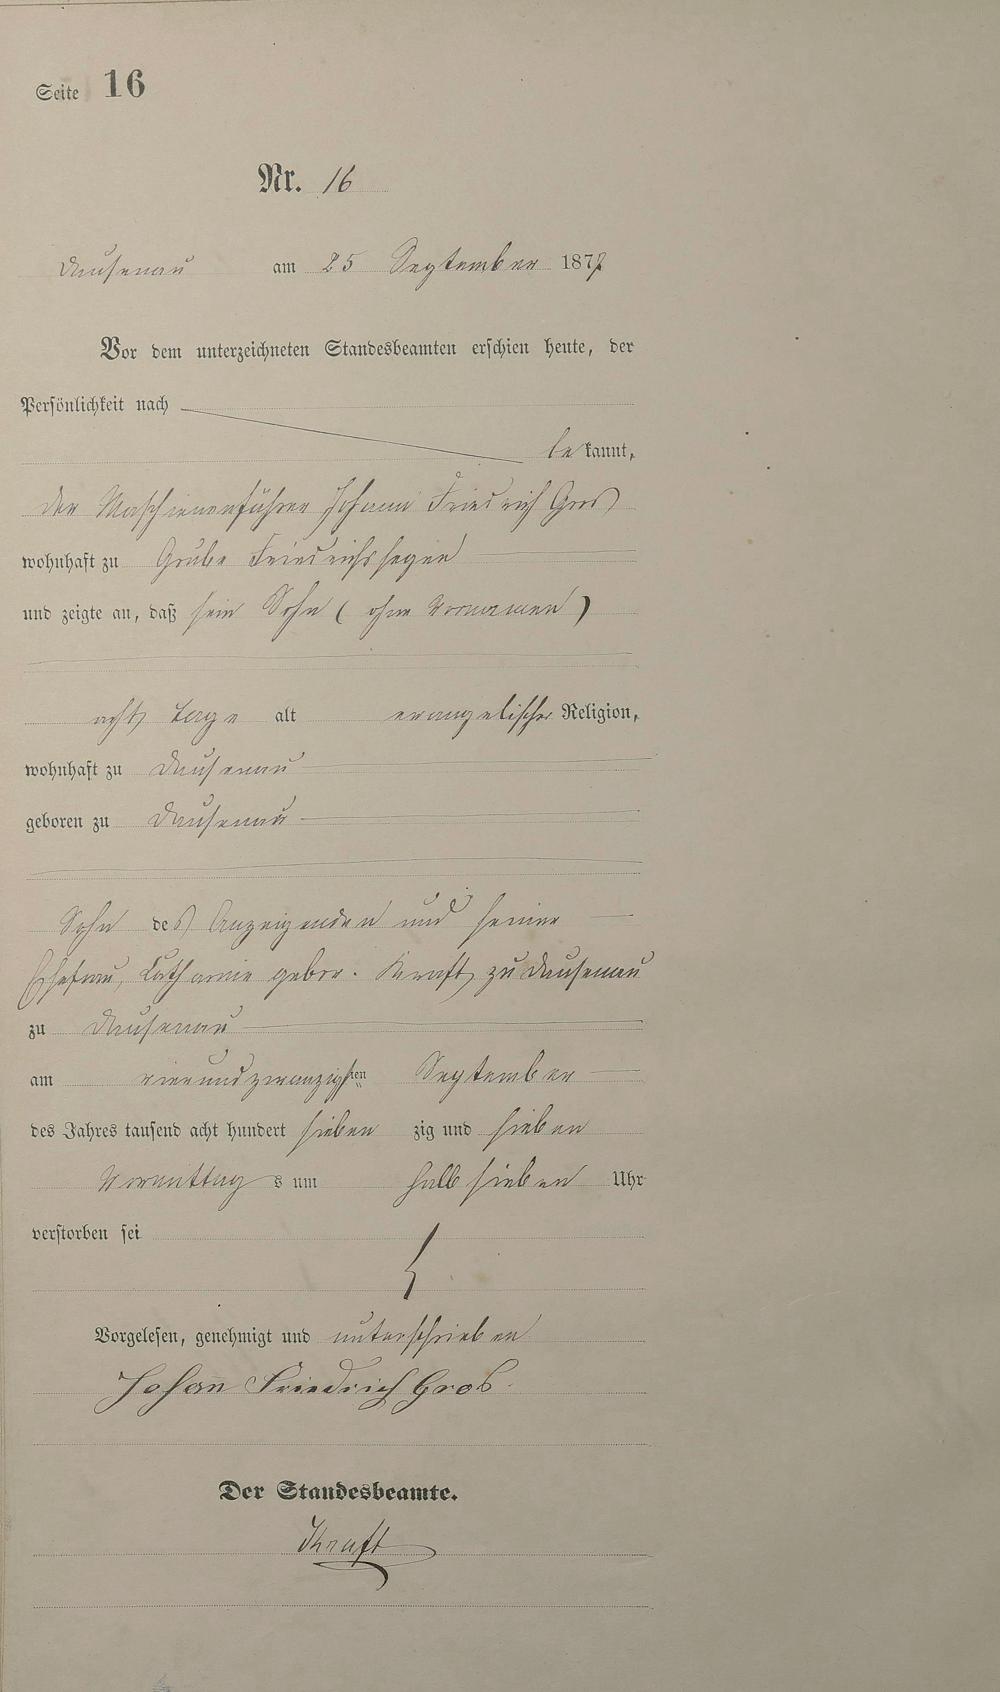 Seite 16
Nr. 16
Dausenau am 25 September 1877
Vor dem unterzeichneten Standesbeamten erschien heute, der
Persönlichkeit nach
bekannt,
der Maschienenführer Johann Friedrich Gros
wohnhaft zu Grube Friedrichssegen
und zeigte an, daß sein Sohn (ohne Vornamen)
acht Tage alt evangelischer Religion,
wohnhaft zu Dausenau
geboren zu Dausenau
Sohn des Anzeigenden und seiner
Ehefrau, Catharine gebor. Kraft zu Dausenau
zu Dausenau
am vierundzwanzigsten September
des Jahres tausend acht hundert siebenzig und sieben
Vormittags um halb sieben Uhr
verstorben sei
Vorgelesen, genehmigt und unterschrieben
Johann Friedrich Gros
Der Standesbeamte.
Kraft